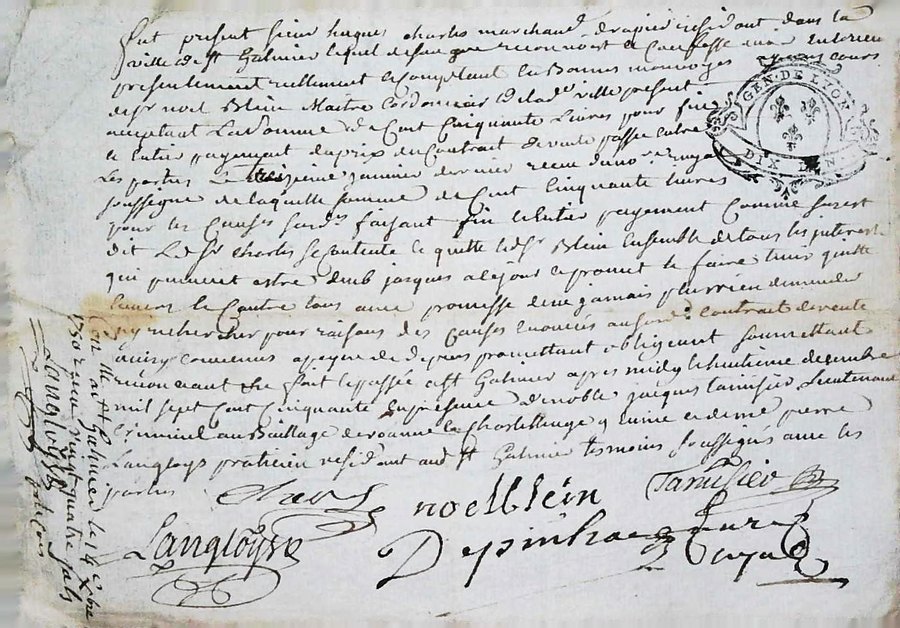 fut present sieur hugues charles marchand drapier residant dans la
ville de st Galmier lequel de son gre reconnoit & Confesse avoir
presentement reellement & Comptant en Bonnes monnoyes cours
de sr noel Blein Maitre Cordonnier de lad. ville present
acceptant La somme de Cent Cinquante Livres pour fin
& Entier payement du prix du Contrat de vente passé Entre
Les parties Le janvier dernier receu du no.re royal
soussigné de laquelle somme de Cent Cinquante livres
pour les Causes susd. faisant fin & Entier payement Comme sus est
dit Led. sr Charles se Contente & quitte led. sr Blein Ensemble de tous les interets
qui peuvent estre deub jusques a ce jour & promet le faire tenir quitte
Envers & Contre tous avec promesse de ne jamais plus rien demander
ny rechercher pour raisons des Causes enoncées aususd. Contrat de vente
ainsy Convenus a peyne de depens promettant obligeant soumettant
renonceant &c fait & passé a st Galmier apres midy le huitieme decembre
mil sept Cent Cinquante En presence de noble jacques tamisier Lieutenant
Criminel au Baillage de roanne & de me pierre
Langloys praticien residant aud. st Galmier temoins soussignés avec les
parties
Charles noel blein Tamisier
Langloys Depinhac
royal
GEN · DE LYON
DIX DEN
Con.llé a st Galmier le 14 Xbre
1750 receu vingt quatre sols
Langloys